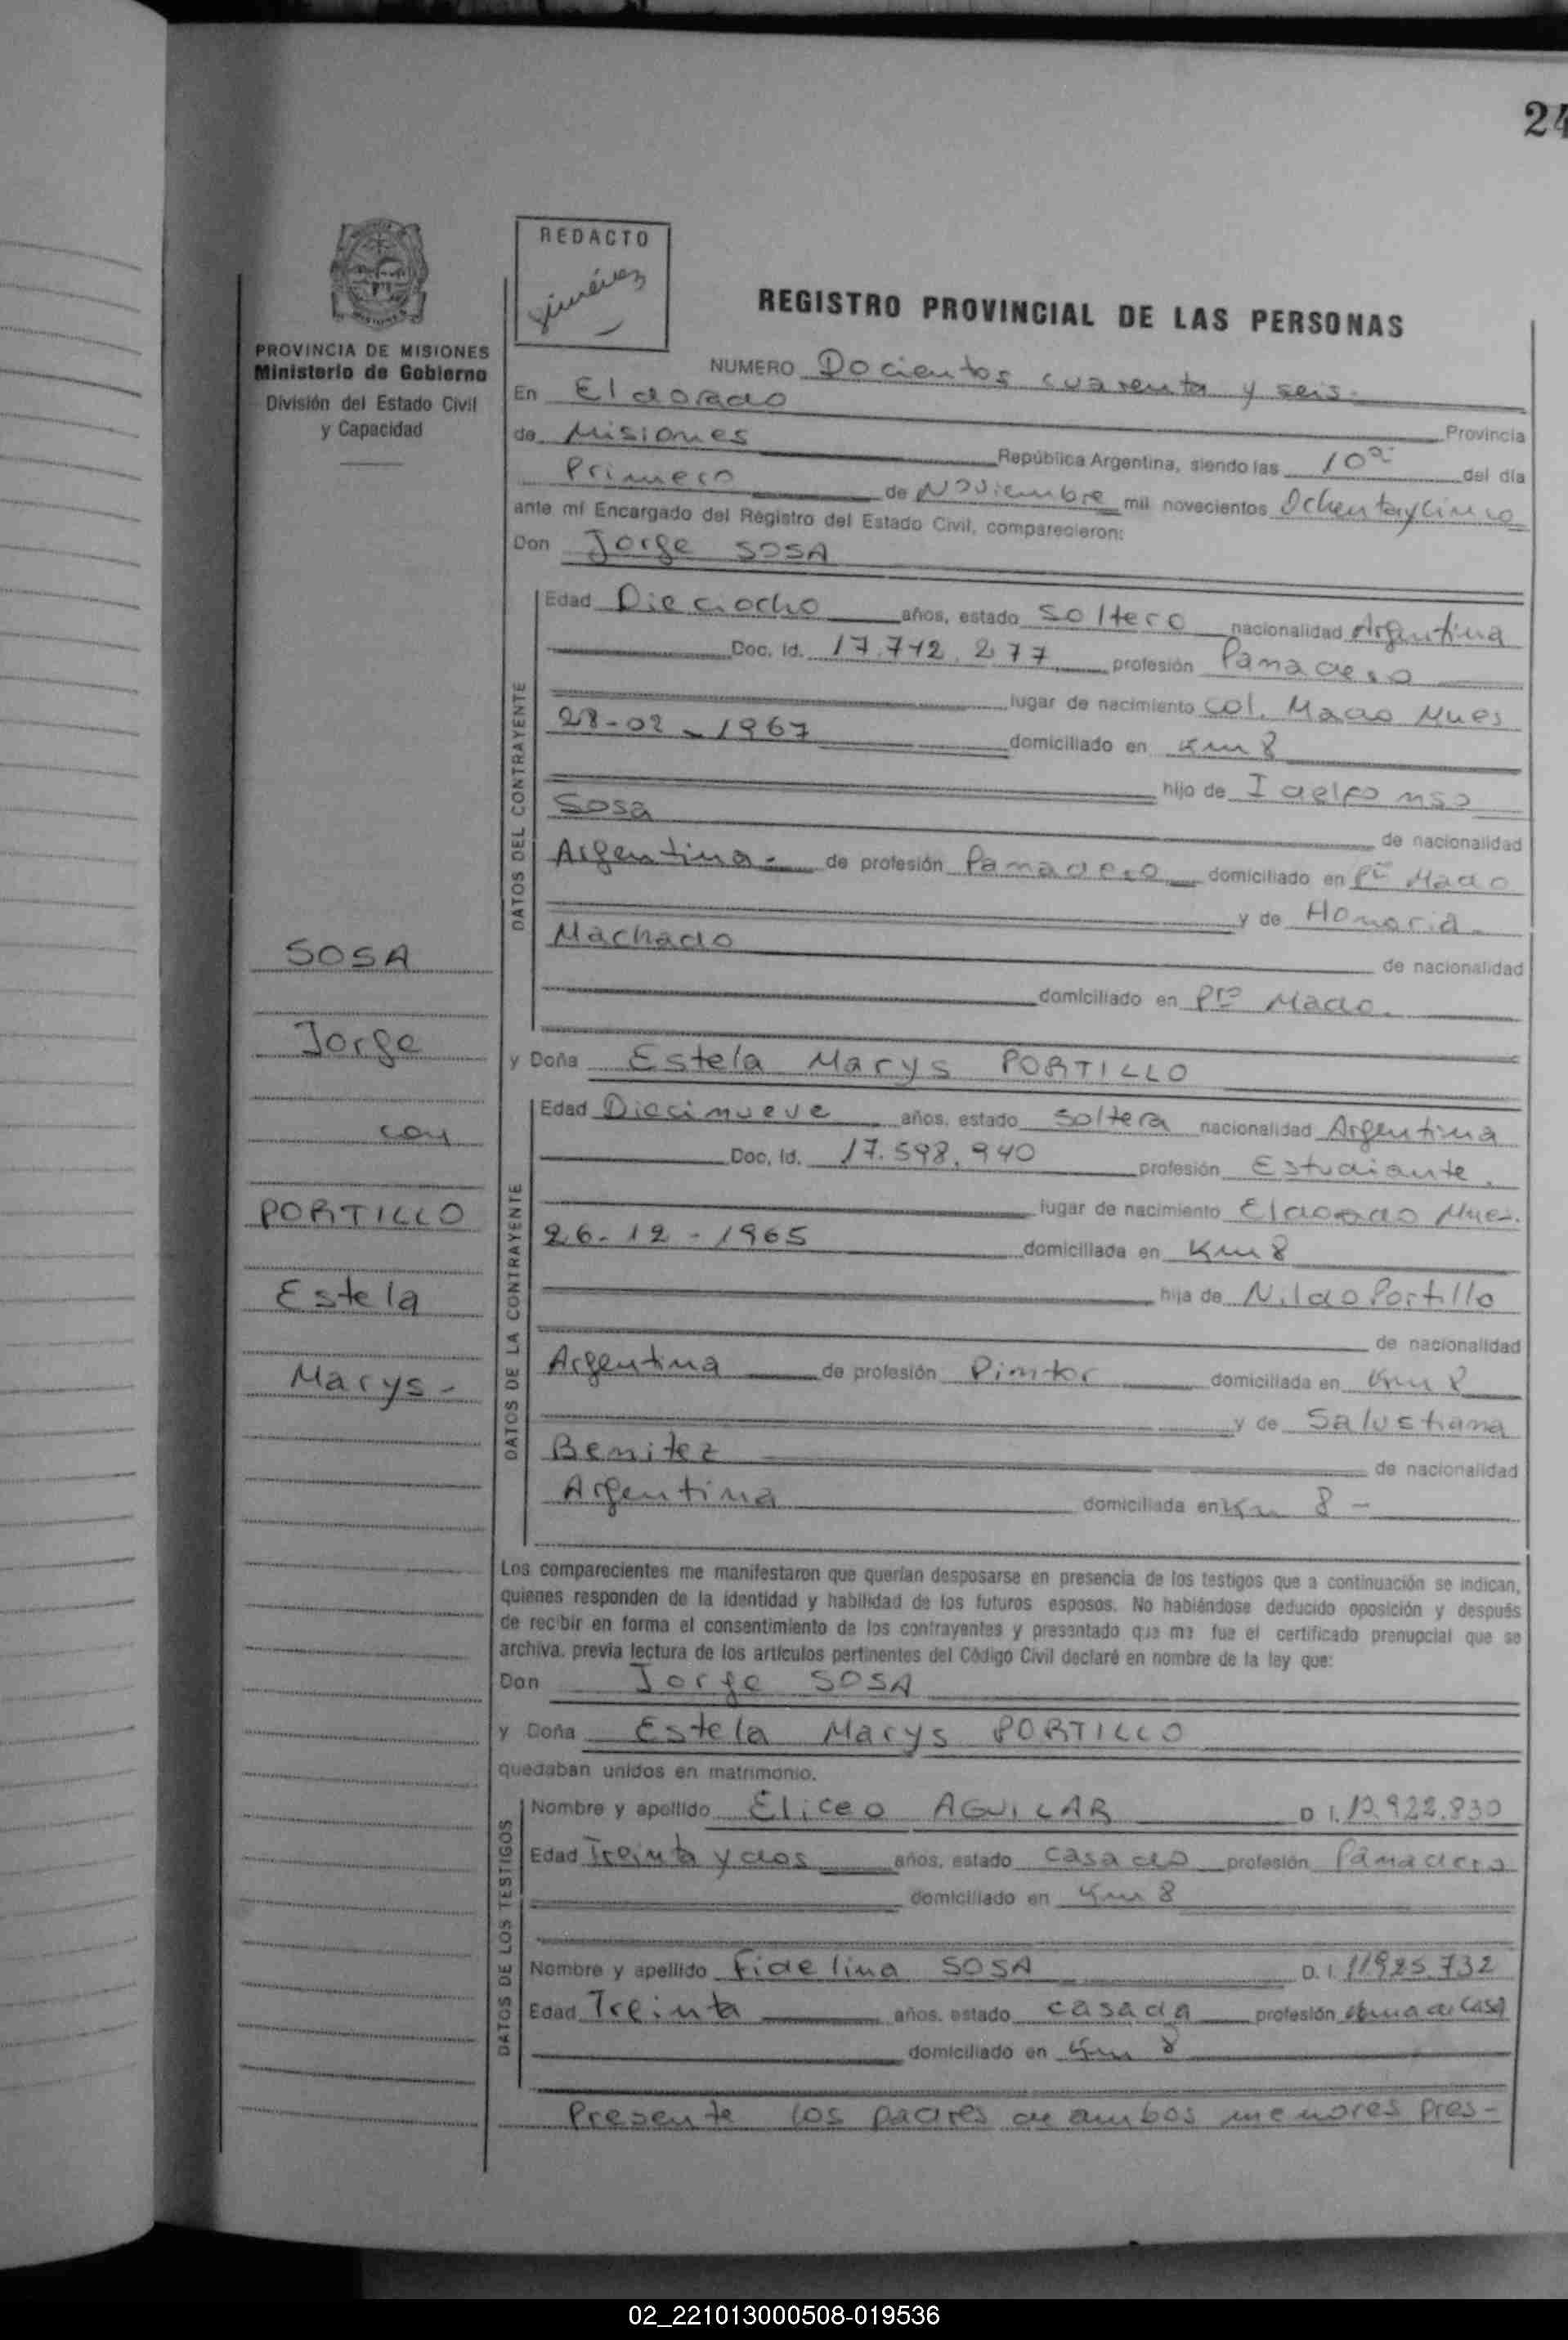 24
REDACTO
Giménez
PROVINCIA DE MISIONES
Ministerio de Gobierno
División del Estado Civil
y Capacidad
REGISTRO PROVINCIAL DE LAS PERSONAS
NUMERO Docientos cuarenta y seis-
En Eldorado
Provincia
de Misiones República Argentina, siendo las 10 del día
Primero de Noviembre mil novecientos Ochentaycinco
ante mí Encargado del Registro del Estado Civil, comparecieron:
Don Jorge SOSA
DATOS DEL CONTRAYENTE
Edad Dieciocho años, estado soltero nacionalidad Argentina
Doc. Id. 17.712.277 profesión Panadero
lugar de nacimiento Col. Mado Mnes
28-02-1967 domiciliado en Km 8
hijo de Idelfonso
Sosa de nacionalidad
Argentina- de profesión Panadero domiciliado en Pto Mado
y de Honoria
Machado de nacionalidad
domiciliado en Pto Mado.
y Doña Estela Marys PORTILLO
DATOS DE LA CONTRAYENTE
Edad Diecinueve años, estado soltera nacionalidad Argentina
Doc, Id. 17.598.940 profesión Estudiante.
lugar de nacimiento Eldorado Mnes.
26-12-1965 domiciliada en Km 8
hija de Nildo Portillo
de nacionalidad
Argentina de profesión Pintor domiciliada en Km 8
y de Salustiana
Benitez de nacionalidad
Argentina domiciliada en Km 8 -
SOSA
Jorge
con
PORTILLO
Estela
Marys-
Los comparecientes me manifestaron que querían desposarse en presencia de los testigos que a continuación se indican,
quienes responden de la identidad y habilidad de los futuros esposos. No habiéndose deducido oposición y después
de recibir en forma el consentimiento de los contrayentes y presentado que me fue el certificado prenupcial que se
archiva, previa lectura de los artículos pertinentes del Código Civil declaré en nombre de la ley que:
Don Jorge SOSA
y Doña Estela Marys PORTILLO
quedaban unidos en matrimonio.
DATOS DE LOS TESTIGOS
Nombre y apellido Eliceo AGUILAR D I. 10.922.830
Edad Treinta y dos años, estado casado profesión Panadero
domiciliado en Km 8
Nombre y apellido Fidelina SOSA D. I. 11925.732
Edad Treinta años, estado casada profesión ama de casa
domiciliado en Km 8
Presente los padres de ambos menores pres-
02_221013000508-019536